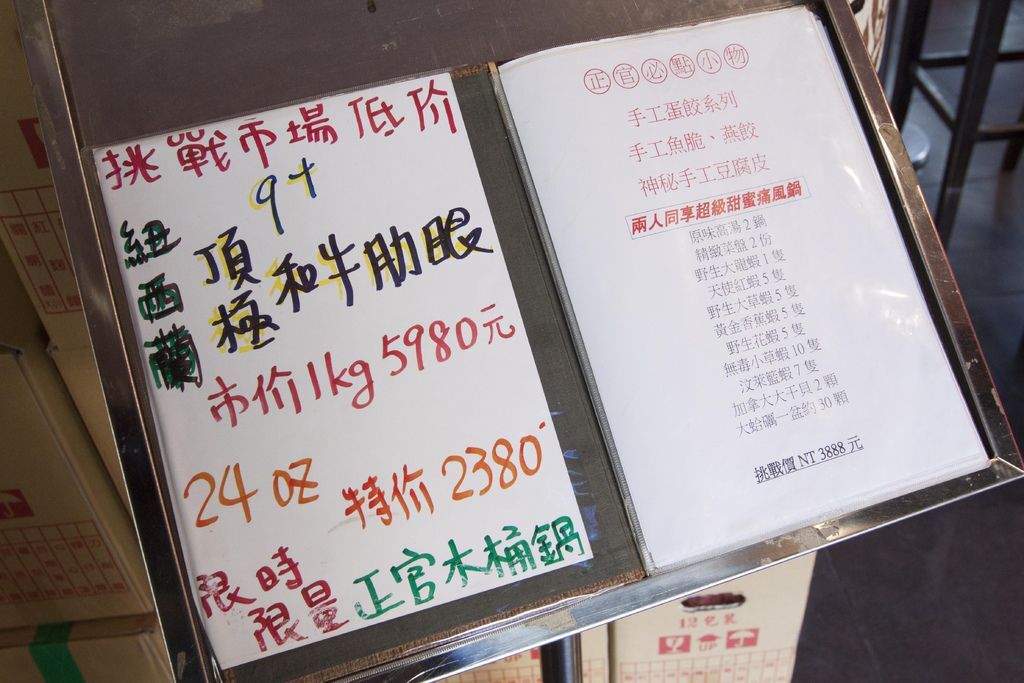 挑戰市場低价
9+
紐西蘭
頂極和牛肋眼
市价1kg 5980元
24 oz 特价 2380
限時
限量
正官木桶鍋
正官必點小物
手工蛋餃系列
手工魚脆、燕餃
神秘手工豆腐皮
兩人同享超級甜蜜痛風鍋
原味高湯 2 鍋
精緻菜盤 2 份
野生大龍蝦 1 隻
天使紅蝦 5 隻
野生大草蝦 5 隻
黃金香蕉蝦 5 隻
野生花蝦 5 隻
無毒小草蝦 10 隻
汶萊籃蝦 7 隻
加拿大大干貝 2 顆
大蛤礪一盆約 30 顆
挑戰價 NT 3888 元
12包裝
UP